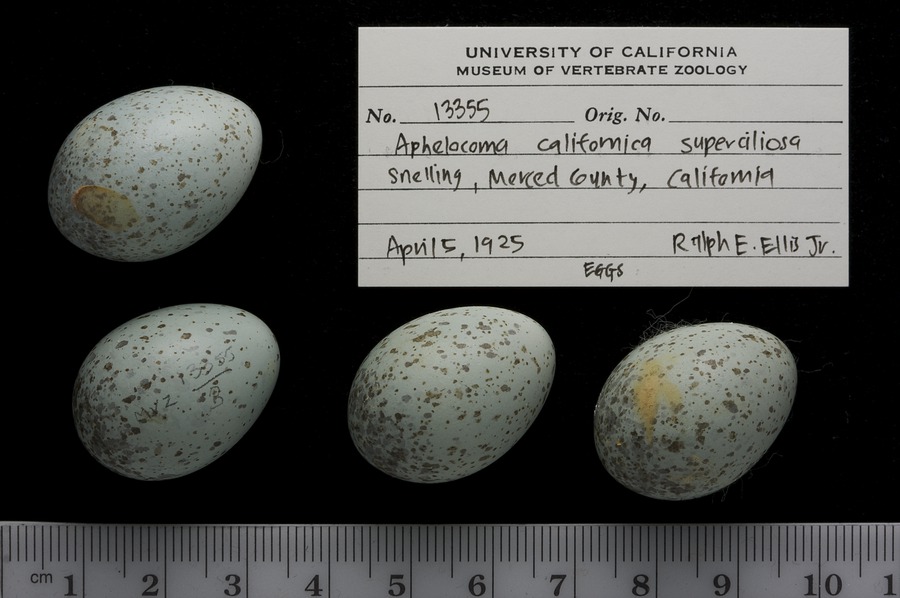 UNIVERSITY OF CALIFORNIA
MUSEUM OF VERTEBRATE ZOOLOGY
No. 13355 Orig. No.
Aphelocoma californica superciliosa
Snelling, Merced County, California
April 5, 1925 Ralph E. Ellis Jr.
EGGS
13355
MVZ B
cm 1 2 3 4 5 6 7 8 9 10 1